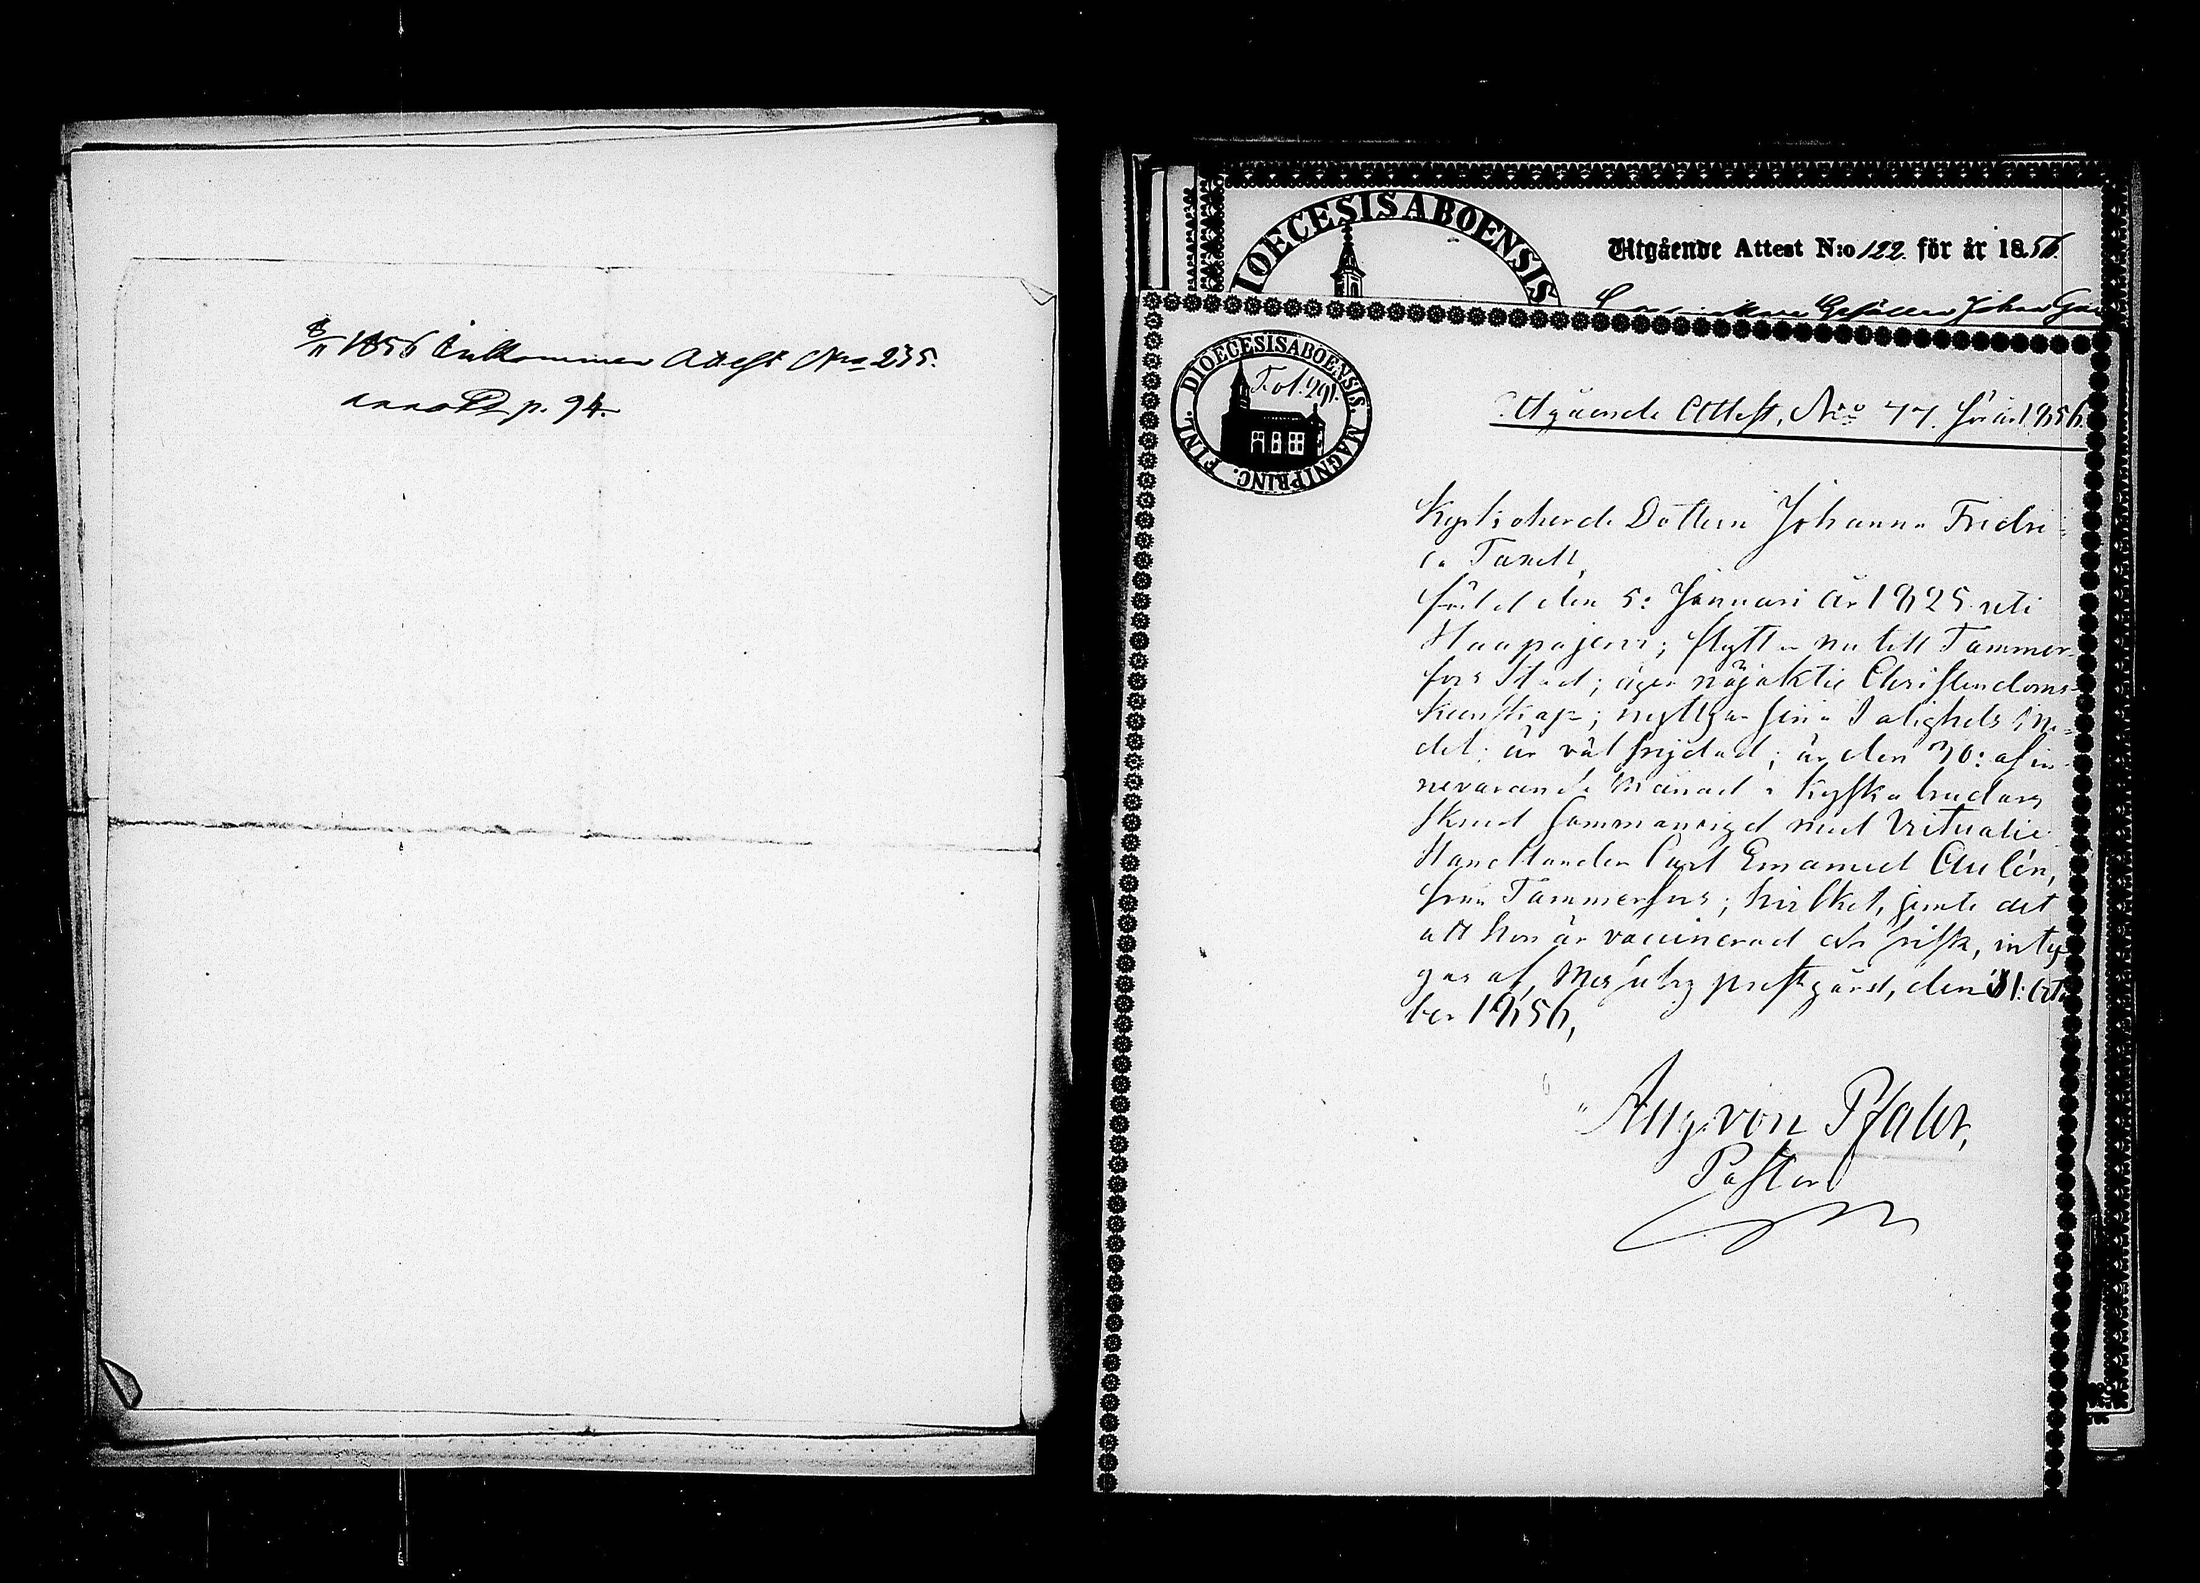 8/11 1856 Inkommen Attest Nro 235.
annot p. 94.
DIOECESIS ABOENSIS
Utgående Attest N:o 122. för år 1856.
Gesällen Johan
DIOECESIS ABOENSIS. MAGNI PRINC. FINL.
Fol. 291.
Utgående Attest, Nro 77. för år 1856.
Kyrkoherde Dottern Johanna Fridri-
ca Tanell,
född den 5: Januari år 1825 uti
Haapajervi; flyttar nu till Tammer-
fors Stad; äger nöjaktig Christendoms-
kunskap; nyttjar sina Salighets me-
del; är väl frejdad; är den 30: af in-
nevarande Månad i kyska brudars
skrud sammanvigd med Victualie
Handlanden Carl Emanuel Aulén,
från Tammerfors; hvilket, jemte det
att hon är vaccinerad och frisk, inty-
gas af, Mesuby prestgård, den 31: Octo
ber 1856,
Aug. von Pfaler,
Pastor